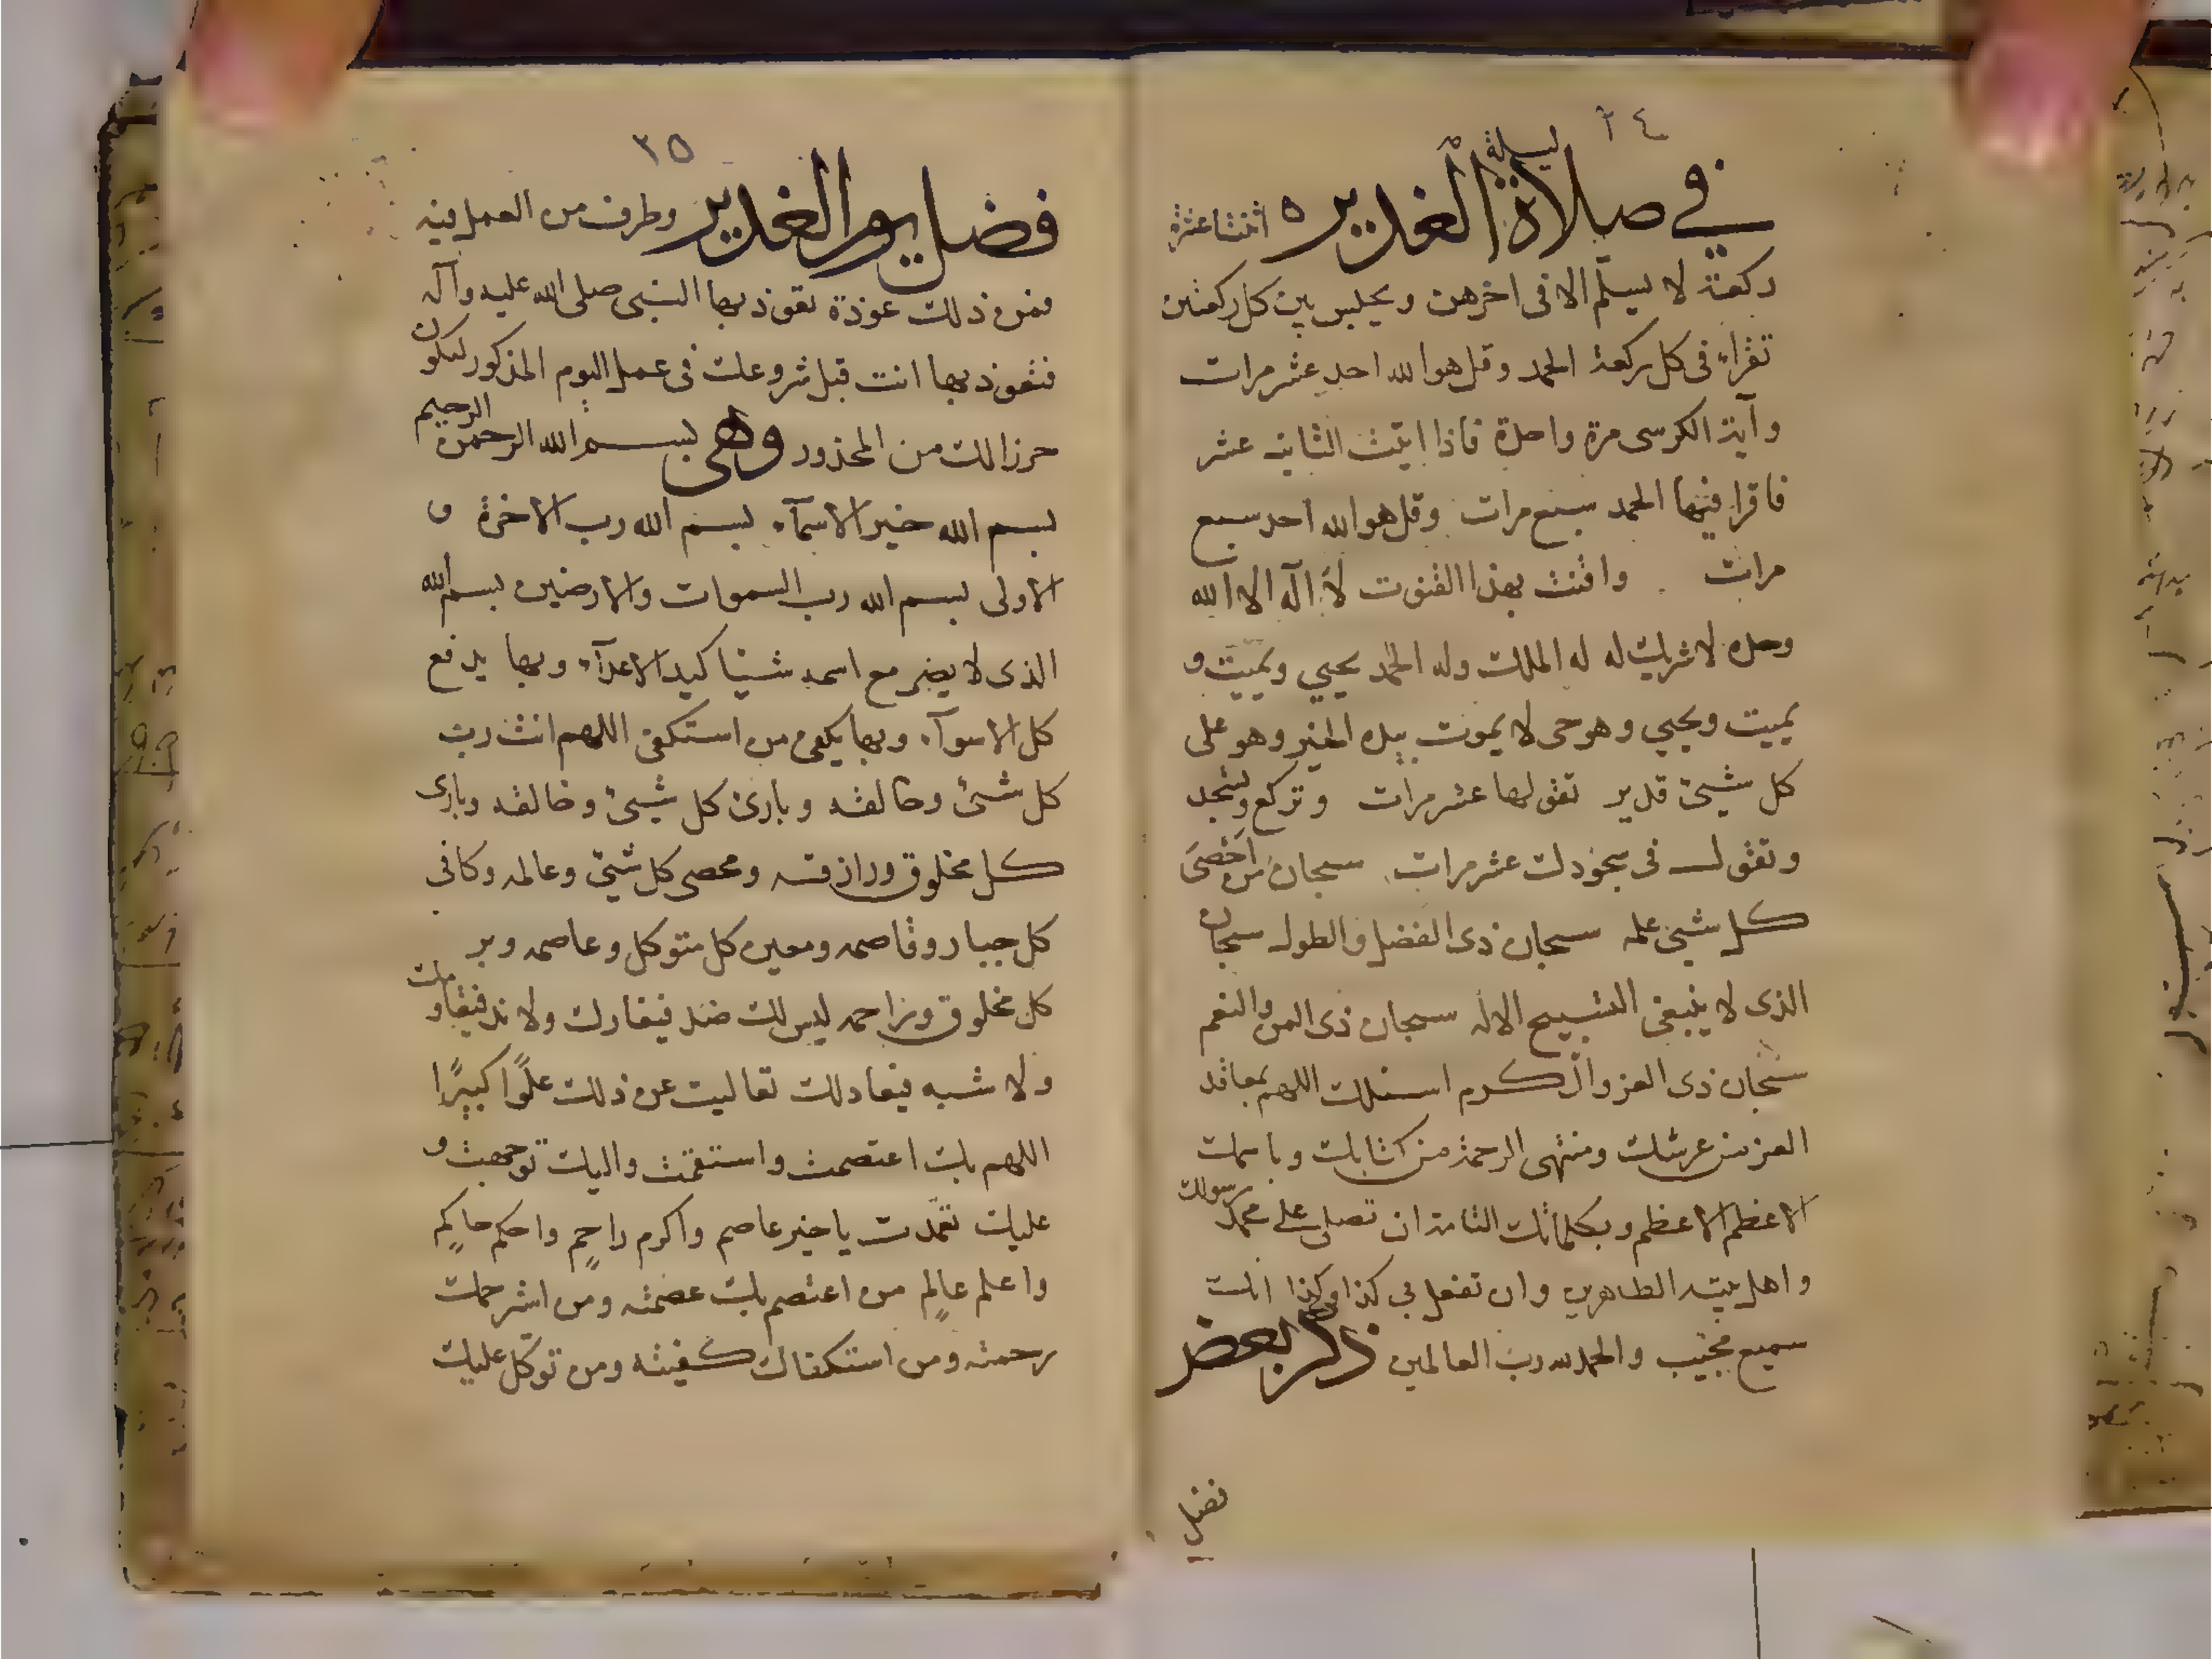 ٢٤
في صلاة ليلة الغدير ٥ اثنتا عشرة
ركعة لا يسلم الا في اخرهن ويجلس بين كل ركعتين
تقراء في كل ركعة الحمد وقل هو الله احد عشر مرات
وآية الكرسي مرة واحدة فاذا اتيت الثانية عشر
فاقرا فيها الحمد سبع مرات وقل هو الله احد سبع
مرات واقنت بهذا القنوت لا اله الا الله
وحده لا شريك له له الملك وله الحمد يحيي ويميت و
يميت ويحيي وهو حي لا يموت بيده الخير وهو على
كل شيئ قدير تقولها عشر مرات وتركع وتسجد
وتقول في سجودك عشر مرات سبحان من احصى
كل شيئ علمه سبحان ذي الفضل والطول سبحان
الذي لا ينبغي التسبيح الا له سبحان ذي المن والنعم
سبحان ذي العز والكرم اسئلك اللهم بمعاقد
العز من عرشك ومنتهى الرحمة من كتابك وباسمك
الاعظم الاعظم وبكلماتك التامة ان تصلي على محمد رسولك
واهل بيته الطاهرين وان تفعل بي كذا وكذا انك
سميع مجيب والحمد لله رب العالمين ذكر بعض
فضل
٢٥
فضل يوم الغدير وطرف من العمل فيه
فمن ذلك عوذة تعوذ بها النبي صلى الله عليه وآله
فتعوذ بها انت قبل شروعك في عمل اليوم المذكور ليكون
حرزا لك من المحذور وهي بسم الله الرحمن الرحيم
بسم الله خير الاسمآء بسم الله رب الاخرة و
الاولى بسم الله رب السموات والارضين بسم الله
الذي لا يضر مع اسمه شيئا كيد الاعدآء وبها يدفع
كل الاسوآء وبها يكفى من استكفى اللهم انت رب
كل شئ وخالقه وبارئ كل شيئ وخالقه وبارى
كل مخلوق ورازقه ومحصي كل شيئ وعالمه وكافي
كل جبار وقاصمه ومعين كل متوكل وعاصمه وبر
كل مخلوق وراحمه ليس لك ضد فيعادك ولا ند فيقاومك
ولا شبيه فيعادلك تعاليت عن ذلك علوًّا كبيرًا
اللهم بك اعتصمت واستقمت واليك توجهت و
عليك تعمدت يا خير عاصم واكرم راحم واحكم حاكم
واعلم عالم من اعتصم بك عصمته ومن استرحمك
رحمته ومن استكفاك كفيته ومن توكل عليك